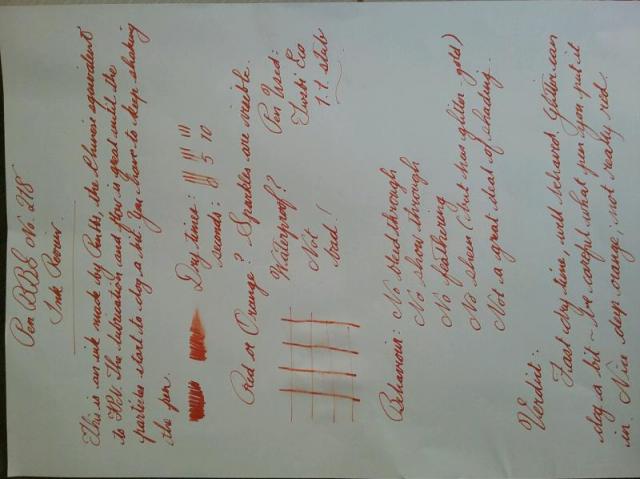 Pen BBS No. 218
Ink Review
This is an ink made by Penbbs, the Chinese equivalent
to FPN. The lubrication and flow is great until the
particles start to clog a bit. You have to keep shaking
the pen.
Dry times:
seconds: 1 5 10
Red or Orange? Sparkles are visible.
Waterproof?
Not
bad!
Pen Used:
Twsbi Eco
1.1 stub
Behaviour: No bleedthrough
No show through
No feathering
No sheen (but has glitter - gold)
Not a great deal of shading.
Verdict:
Fast dry time, well behaved. Glitter can
clog a bit - be careful what pen you put it
in. Nice deep orange; not really red.